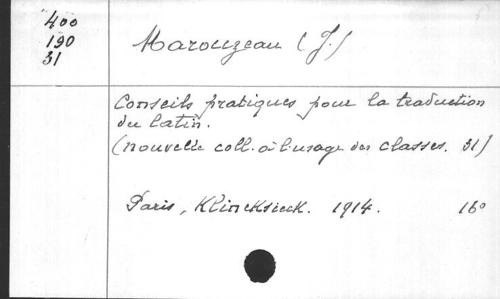 400
190
31
Marouzeau (J.)
Conseils pratiques pour la traduction
du latin.
(nouvelle coll. à l'usage des classes. 31)
Paris, Klincksieck. 1914. 16°